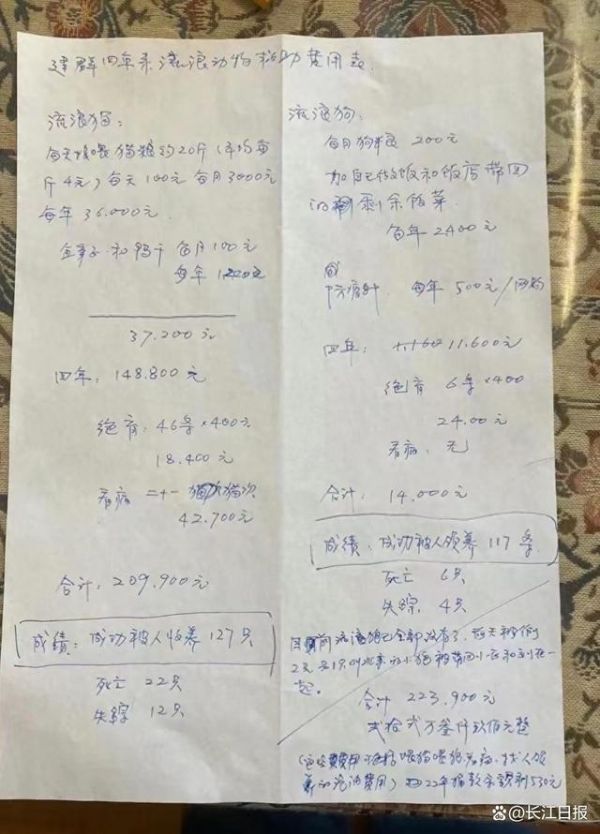 建群四年来流浪动物救助费用表
流浪猫:
每天喂猫粮约20斤(平均每
斤4元)每天100元 每月3000元
每年36.000元
和鸭干 每月100元
每年1200元
37.200元
四年:148.800元
绝育:46条×400元
18.400元
看病 二十一 猫次
42.700元
合计:209.900元
成绩:成功被人领养127只
死亡 22只
失踪 12只
流浪狗:
每月狗粮 200元
加自己做饭和饭店带回
的剩余饭菜
每年2400元
每年500元/
四年: 11.600元
绝育 6条×400
24.00元
看病:无
合计:14.000元
成绩:成功被人领养117条
死亡 6只
失踪 4只
目前流浪狗已全部没有了,
起。
合计 223.900元
贰拾贰万叁仟玖佰元整
(这些费用不包括喂猫喂狗看病、找人领
养的汽油费用) 22年捐款余额剩530元
长江日报